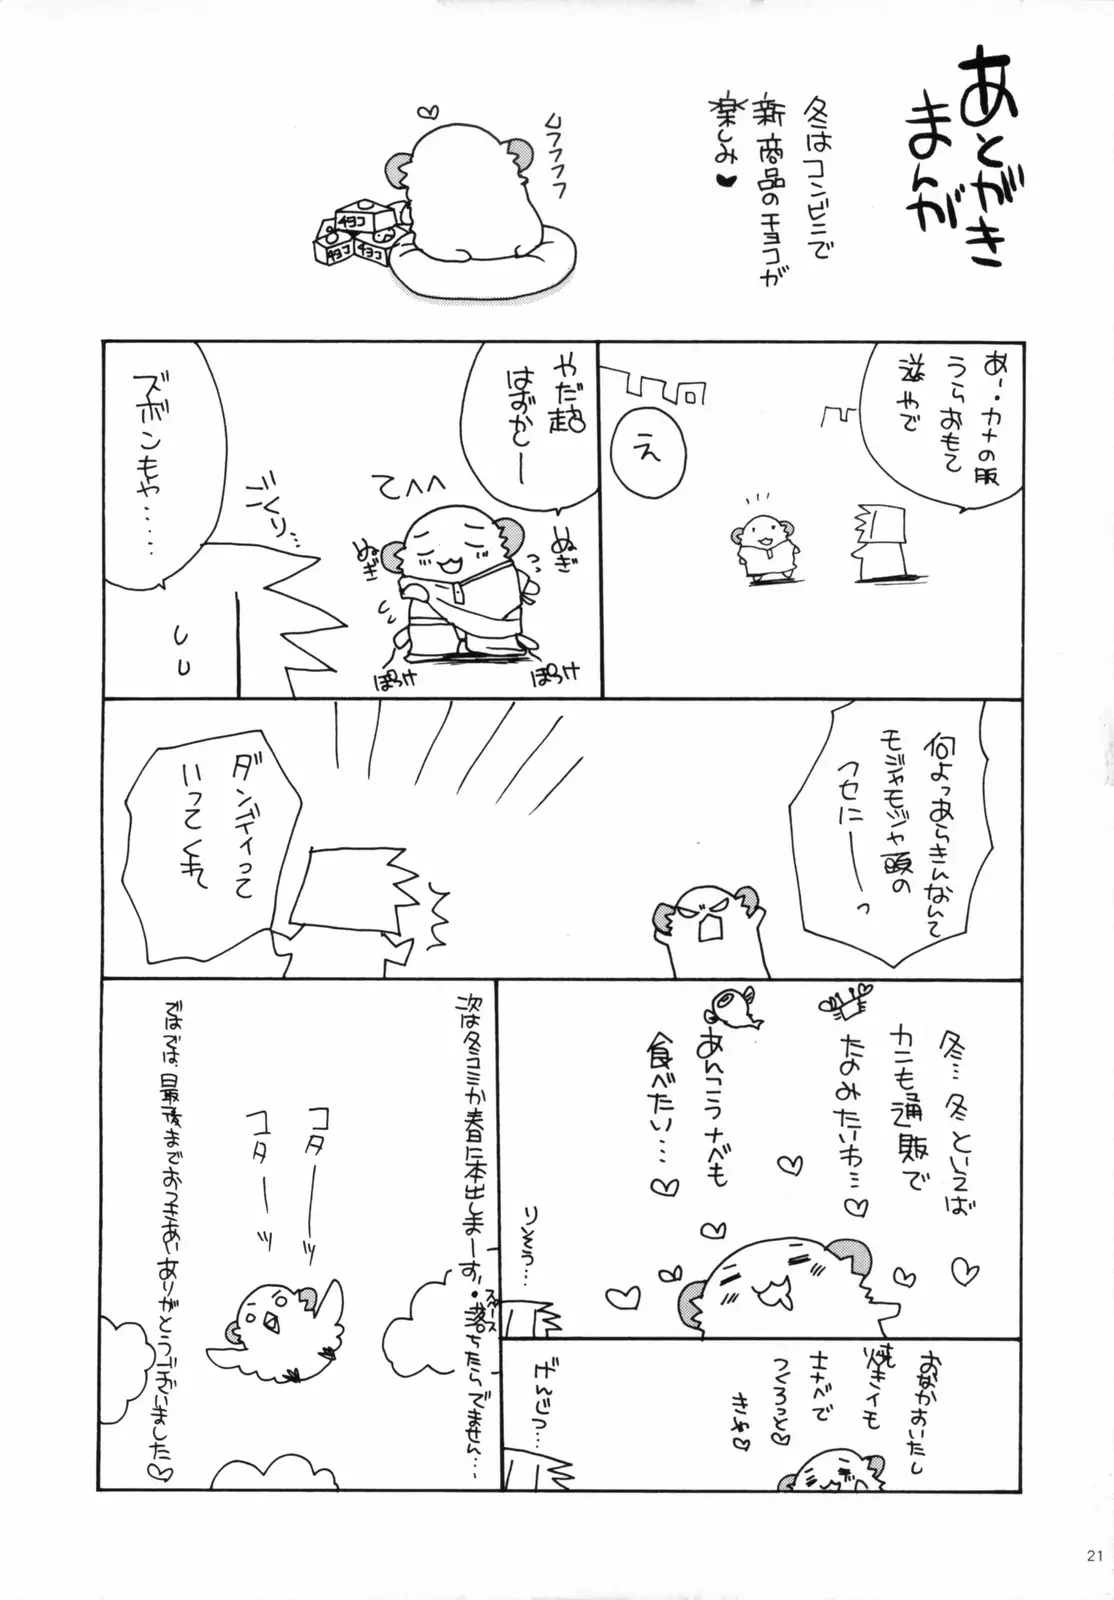 あとがき
まんが
冬はコンビニで
新商品のチョコが
楽しみ♥
ムフフフフ
チョコ
チョコ
チョコ
あー・カナの服
うらおもて
逆やで
え
やだ超
はずかしー
てへへ
ぬぎ
ぬぎ
ぽろけ
ぽろけ
ごくり…
ズボンもや・・・・・
何よっあらきんなんて
モジャモジャ頭の
クセにーーっ
ダンディって
いってくれ
冬…冬といえば
カニも通販で
たのみたいわ…♡
あんこうナベも
食べたい…♡
りそう…
おなかおいたし
焼きイモ
ナベで
つくろっと♡
きゃ♡
げんじつ…
次は冬コミか春に本出しまーす。スペース落ちたらでません…
コターーッ
コターーッ
ではでは、最後までおつきあいありがとうございました♡
21